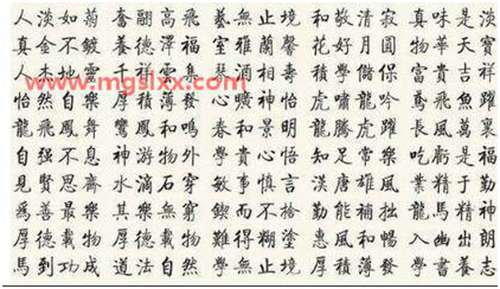 人淡如菊 奮翮高飛 藝無止境 和敬清寂 真味是淡
真金不鍍 養德澤福 室雅蘭馨 花好月圓 物華天寶
地靈 千祥雲集 琴 酒相 壽 學 保 富貴吉祥
www.mgslxx.com
怡然自樂 厚積薄發 心曠神怡 虎嘯龍吟 鳶飛魚躍
龍飛鳳舞 鸞鳳和鳴 春和景明 龍騰虎躍 長風萬裏
自强不息 神游物外 貴心悟 知足常樂 吃虧是福
見賢思齊 水滴石穿 敏事慎言 漢唐雄風 業精于勤
爲善最樂 其樂無窮 鍥而不捨 勤能補拙 龍馬精神
厚德載物 厚德載物 難得糊塗 惠風和暢 入幽出朗
馬到功成 道法自然 學無止境 厚積薄發 學書養志